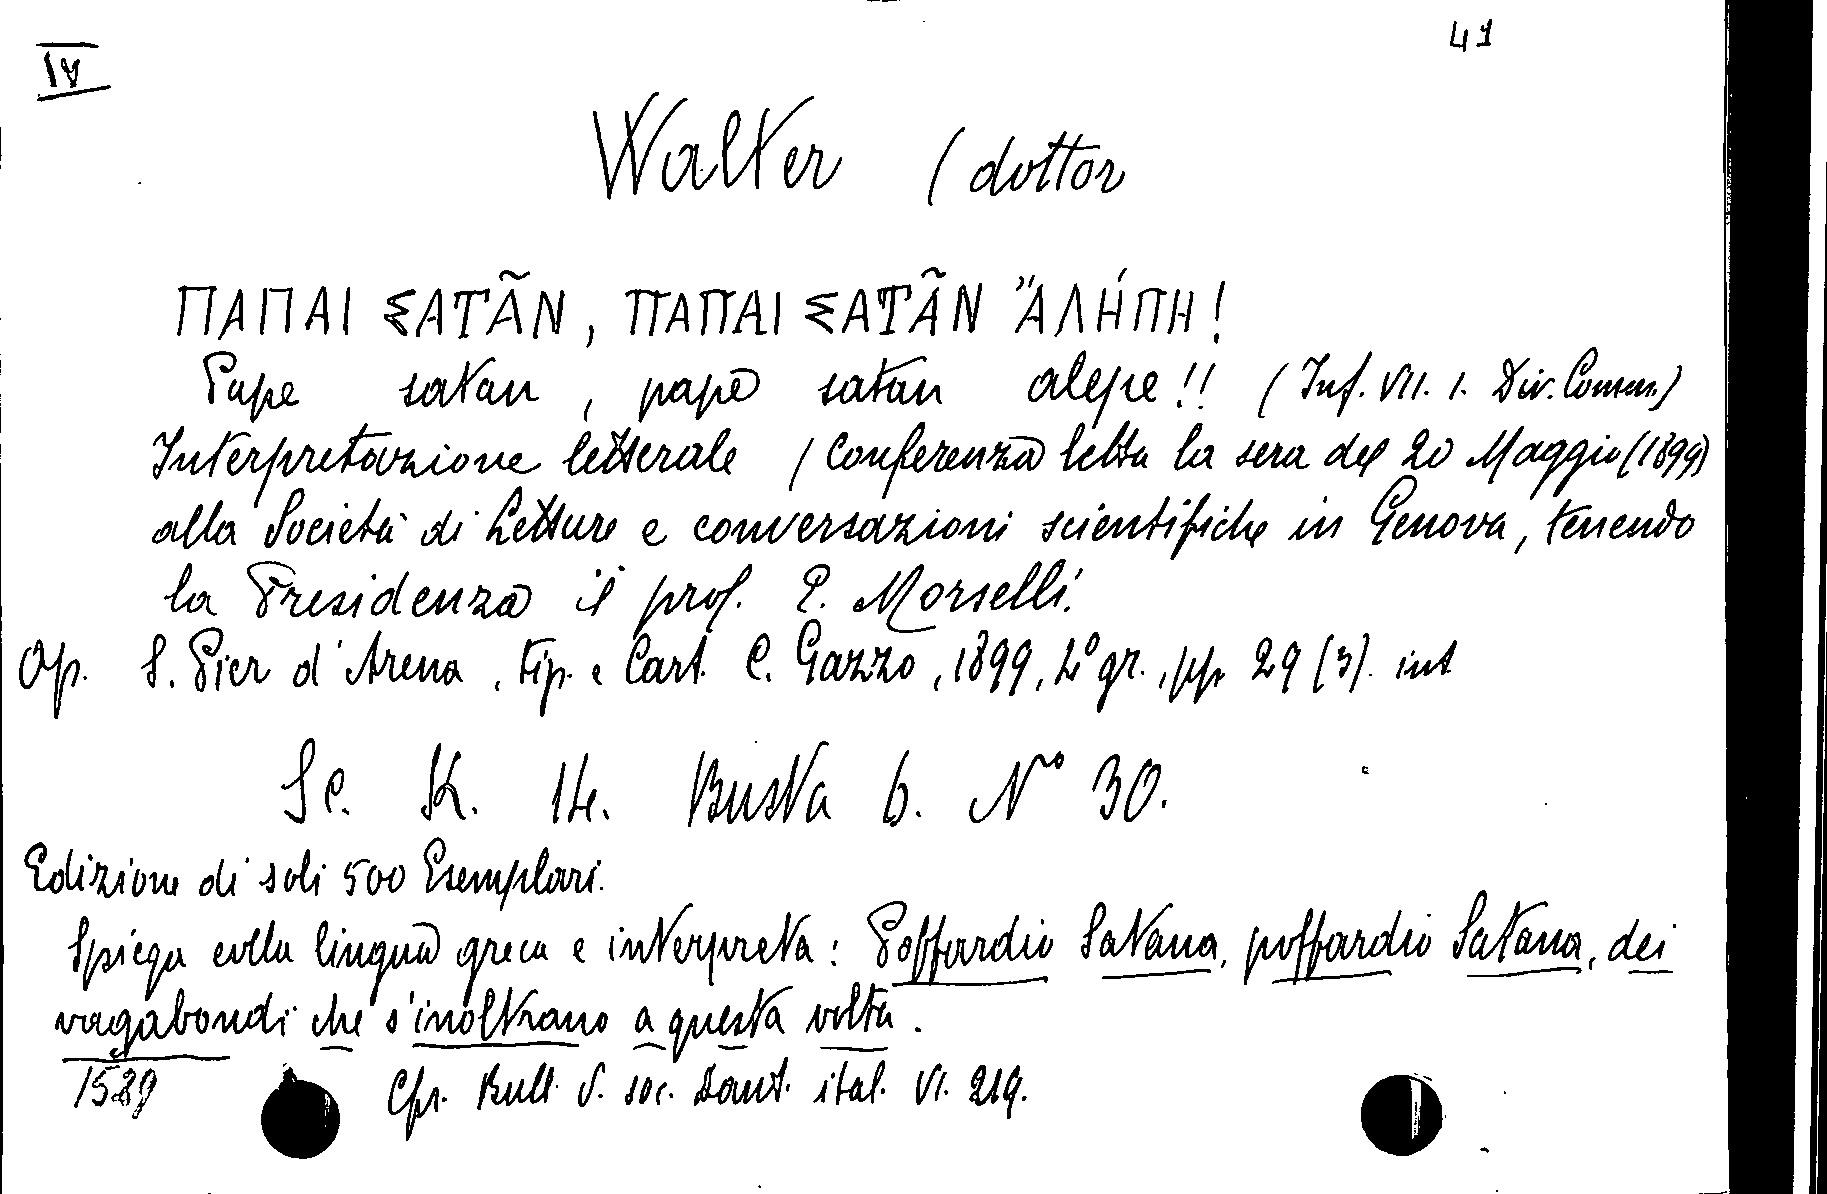 IV
41
Walter (dottor
ΠΑΠΑΙ ΣΑΤÃΝ, ΠΑΠΑΙ ΣΑΤÃΝ ἌΛΉΠΗ!
Pape satan, pape satan alepe!! (Inf. VII. 1. Div. Comm.)
Interpretazione letterale / Conferenza letta la sera del 20 Maggio (1899)
alla Società di Letture e conversazioni scientifiche in Genova, tenendo
la Presidenza il prof. E. Morselli.
Op. S. Pier d'Arena, tip. e Cart. C. Gazzo, 1899, 4° gr., pp. 29 (3). int
Sc. K. 14. Busta 6. N° 30.
Edizione di soli 500 Esemplari.
Spiega colla lingua greca e interpreta: Poffardio Satana, poffardio Satana, dei
vagabondi che s'inoltrano a questa volta.
1589
Cfr. Bull. d. soc. Dant. ital. VI. 219.